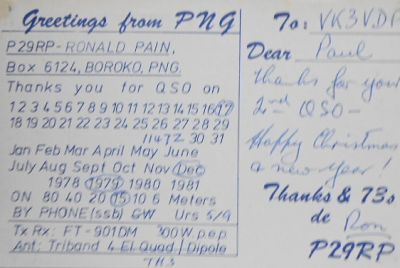 Greetings from PNG
P29RP - RONALD PAIN,
Box 6124, BOROKO, PNG.
Thanks you for QSO on
1 2 3 4 5 6 7 8 9 10 11 12 13 14 15 16 17
18 19 20 21 22 23 24 25 26 27 28 29
1147Z 30 31
Jan Feb Mar April May June
July Aug Sept Oct Nov Dec
1978 1979 1980 1981
ON 80 40 20 15 10 6 Meters
BY PHONE (ssb) CW Urs 5/9
Tx Rx: FT-901DM 300W p.e.p
Ant: Triband 4 El Quad / Dipole
TH3
To: VK3VDP
Dear Paul
thanks for your
2nd QSO -
Happy Christmas
a new year!
Thanks & 73s
de Ron
P29RP